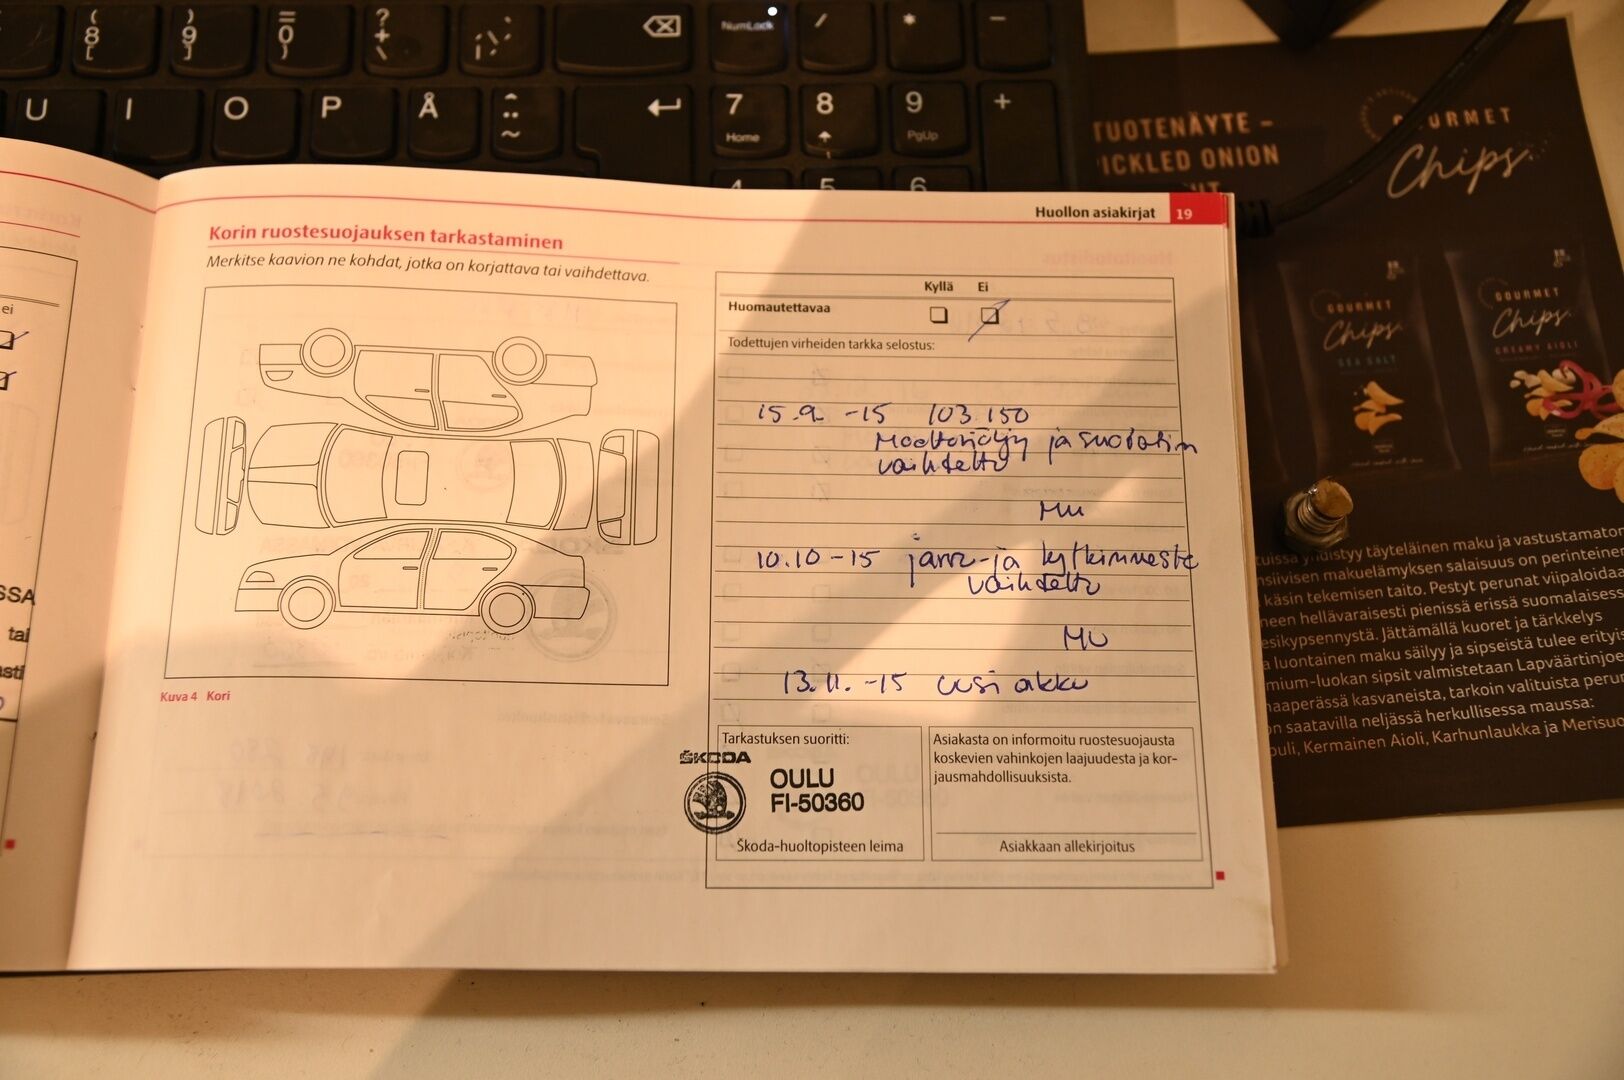 8
9
0
?
+
NumLock
/
*
-
U
I
O
P
Å
^
¨
~
7
Home
8
9
PgUp
+
4
5
6
TUOTENÄYTE –
PICKLED ONION
GOURMET
Chips.
GOURMET
Chips
SEA SALT
GOURMET
Chips.
CREAMY AIOLI
ei
SSA
tai
asti
Huollon asiakirjat 19
Korin ruostesuojauksen tarkastaminen
Merkitse kaavion ne kohdat, jotka on korjattava tai vaihdettava.
Kuva 4 Kori
Kyllä Ei
Huomautettavaa
Todettujen virheiden tarkka selostus:
15.9 -15 103.150
Moottoriöljy ja suodatin
vaihdettu
MU
10.10 -15 jarru- ja kytkinneste
vaihdettu
MU
13.11. -15 uusi akku
Tarkastuksen suoritti:
ŠKODA
OULU
FI-50360
Škoda-huoltopisteen leima
Asiakasta on informoitu ruostesuojausta
koskevien vahinkojen laajuudesta ja kor-
jausmahdollisuuksista.
Asiakkaan allekirjoitus
yhdistyy täyteläinen maku ja vastustamaton
makuelämyksen salaisuus on perinteinen
käsin tekemisen taito. Pestyt perunat viipaloidaan
hellävaraisesti pienissä erissä suomalaisessa
Jättämällä kuoret ja tärkkelys
luontainen maku säilyy ja sipseistä tulee
sipsit valmistetaan Lapväärtinjoen
kasvaneista, tarkoin valituista
on saatavilla neljässä herkullisessa maussa:
Kermainen Aioli, Karhunlaukka ja Merisuola